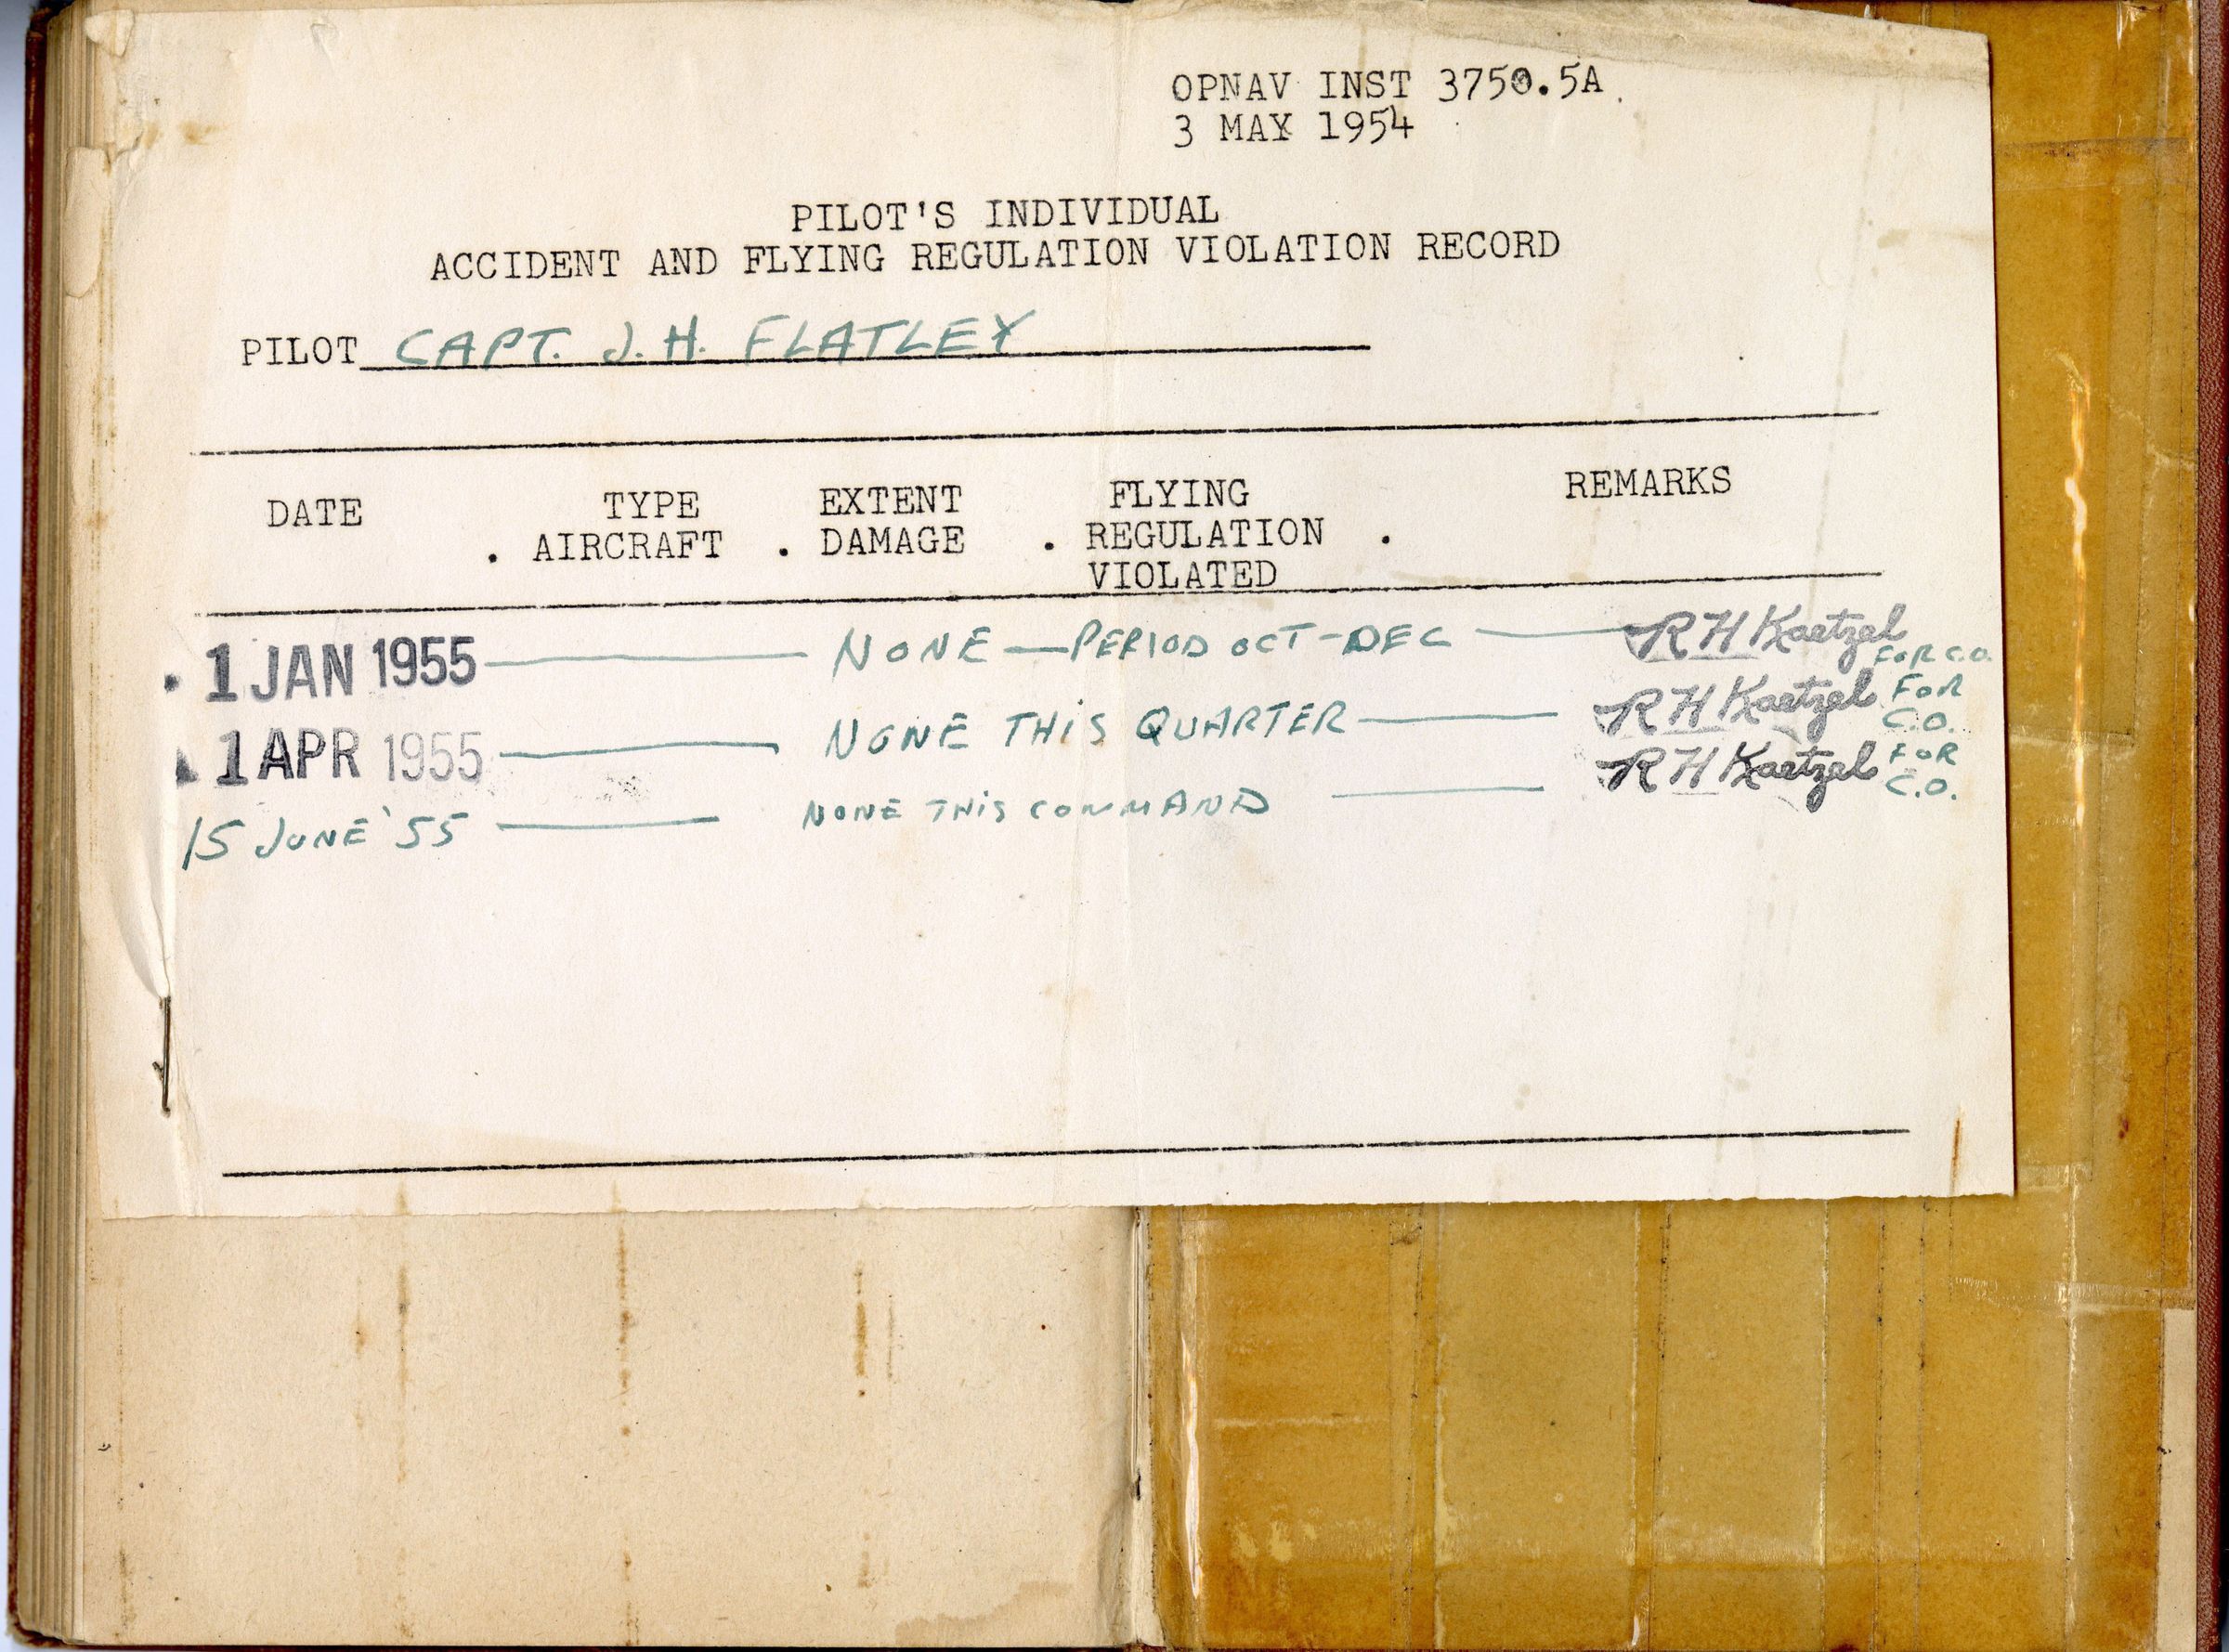 OPNAV INST 3750.5A
3 MAY 1954
PILOT'S INDIVIDUAL
ACCIDENT AND FLYING REGULATION VIOLATION RECORD
PILOT CAPT. J. H. FLATLEY
DATE . TYPE AIRCRAFT . EXTENT DAMAGE . FLYING REGULATION VIOLATED . REMARKS
1 JAN 1955 — NONE — PERIOD OCT-DEC — R H Kaetzel FOR C.O.
1 APR 1955 — NONE THIS QUARTER — R H Kaetzel FOR C.O.
15 JUNE '55 — NONE THIS COMMAND — R H Kaetzel FOR C.O.